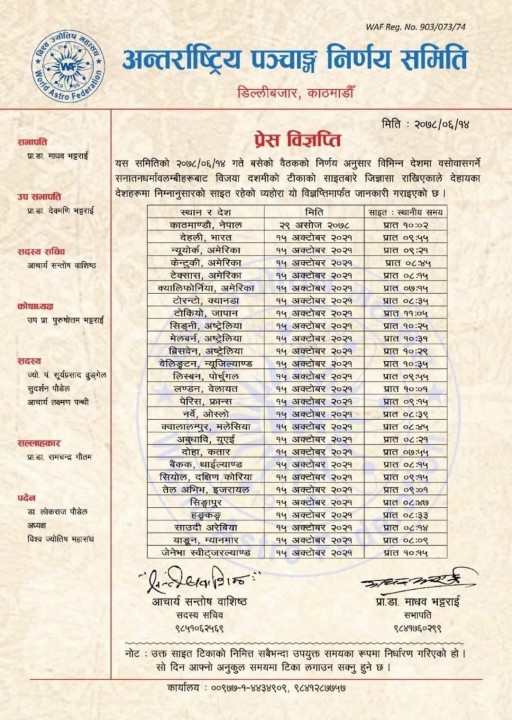 WAF Reg. No. 903/073/74
विश्व ज्योतिष महासंघ
WAF
World Astro Federation
अन्तर्राष्ट्रिय पञ्चाङ्ग निर्णय समिति
डिल्लीबजार, काठमाडौँ
मिति : २०७८/०६/१४
प्रेस विज्ञप्ति
यस समितिको २०७८/०६/१४ गते बसेको वैठकको निर्णय अनुसार विभिन्न देशमा वसोवासगर्ने
सनातनधर्मावलम्बीहरूबाट विजया दशमीको टीकाको साइतबारे जिज्ञासा राखिएकाले देहायका
देशहरूमा निम्नानुसारको साइत रहेको व्यहोरा यो विज्ञप्तिमार्फत जानकारी गराइएको छ ।
सभापति
प्रा.डा. माधव भट्टराई
उप सभापति
प्रा.डा. देवमणि भट्टराई
सदस्य सचिव
आचार्य सन्तोष वाशिष्ठ
कोषाध्यक्ष
उप प्रा. पुरुषोतम भट्टराई
सदस्य
ज्यो. पं. सूर्यप्रसाद ढुङ्गेल
सुदर्शन पौडेल
आचार्य लक्ष्मण पन्थी
सल्लाहकार
प्रा.डा. रामचन्द्र गौतम
पदेन
डा. लोकराज पौडेल
अध्यक्ष
विश्व ज्योतिष महासंघ
स्थान र देश मिति साइत : स्थानीय समय
काठमाण्डौ, नेपाल २९ असोज २०७८ प्रात १०:०२
देहली, भारत १५ अक्टोबर २०२१ प्रात ०९:५५
न्यूयोर्क, अमेरिका १५ अक्टोबर २०२१ प्रात ०९:२१
केन्टुकी, अमेरिका १५ अक्टोबर २०२१ प्रात ०८:४५
टेक्सास, अमेरिका १५ अक्टोबर २०२१ प्रात ०८:१५
क्यालिफोर्निया, अमेरिका १५ अक्टोबर २०२१ प्रात ०७:१५
टोरन्टो, क्यानडा १५ अक्टोबर २०२१ प्रात ०८:३५
टोकियो, जापान १५ अक्टोबर २०२१ प्रात ११:०५
सिड्नी, अष्ट्रेलिया १५ अक्टोबर २०२१ प्रात १०:२५
मेलबर्न, अष्ट्रेलिया १५ अक्टोबर २०२१ प्रात १०:३१
ब्रिसवेन, अष्ट्रेलिया १५ अक्टोबर २०२१ प्रात १०:२९
वेलिङ्टन, न्यूजिल्याण्ड १५ अक्टोबर २०२१ प्रात १०:३५
लिस्बन, पोर्चुगल १५ अक्टोबर २०२१ प्रात ०९:५५
लण्डन, वेलायत १५ अक्टोबर २०२१ प्रात १०:०१
पेरिस, फ्रान्स १५ अक्टोबर २०२१ प्रात ०९:१५
नर्वे, ओस्लो १५ अक्टोबर २०२१ प्रात ०८:३९
क्वालालम्पुर, मलेसिया १५ अक्टोबर २०२१ प्रात ०८:४५
अबुधावि, युएई १५ अक्टोबर २०२१ प्रात ०८:२१
दोहा, कतार १५ अक्टोबर २०२१ प्रात ०७:५५
बैंकक, थाईल्याण्ड १५ अक्टोबर २०२१ प्रात ०८:१५
सियोल, दक्षिण कोरिया १५ अक्टोबर २०२१ प्रात ०९:१५
तेल अभिभ, इजरायल १५ अक्टोबर २०२१ प्रात ०९:०१
सिङ्गापुर १५ अक्टोबर २०२१ प्रात ०८:४७
हङ्कङ्ग १५ अक्टोबर २०२१ प्रात ०८:३३
साउदी अरेबिया १५ अक्टोबर २०२१ प्रात ०८:१४
याङून, म्यानमार १५ अक्टोबर २०२१ प्रात ०८:०९
जेनेभा स्वीट्जरल्याण्ड १५ अक्टोबर २०२१ प्रात १०:१५
आचार्य सन्तोष वाशिष्ठ
सदस्य सचिव
९८५१०६२५६९
प्रा.डा. माधव भट्टराई
सभापति
९८४१७६०२९९
नोट : उक्त साइत टिकाको निमित्त सबैभन्दा उपयुक्त समयका रूपमा निर्धारण गरिएको हो ।
सो दिन आफ्नो अनुकुल समयमा टिका लगाउन सक्नु हुने छ ।
कार्यालय : ००९७७-१-४४३४९०९, ९८४१२८७७५७